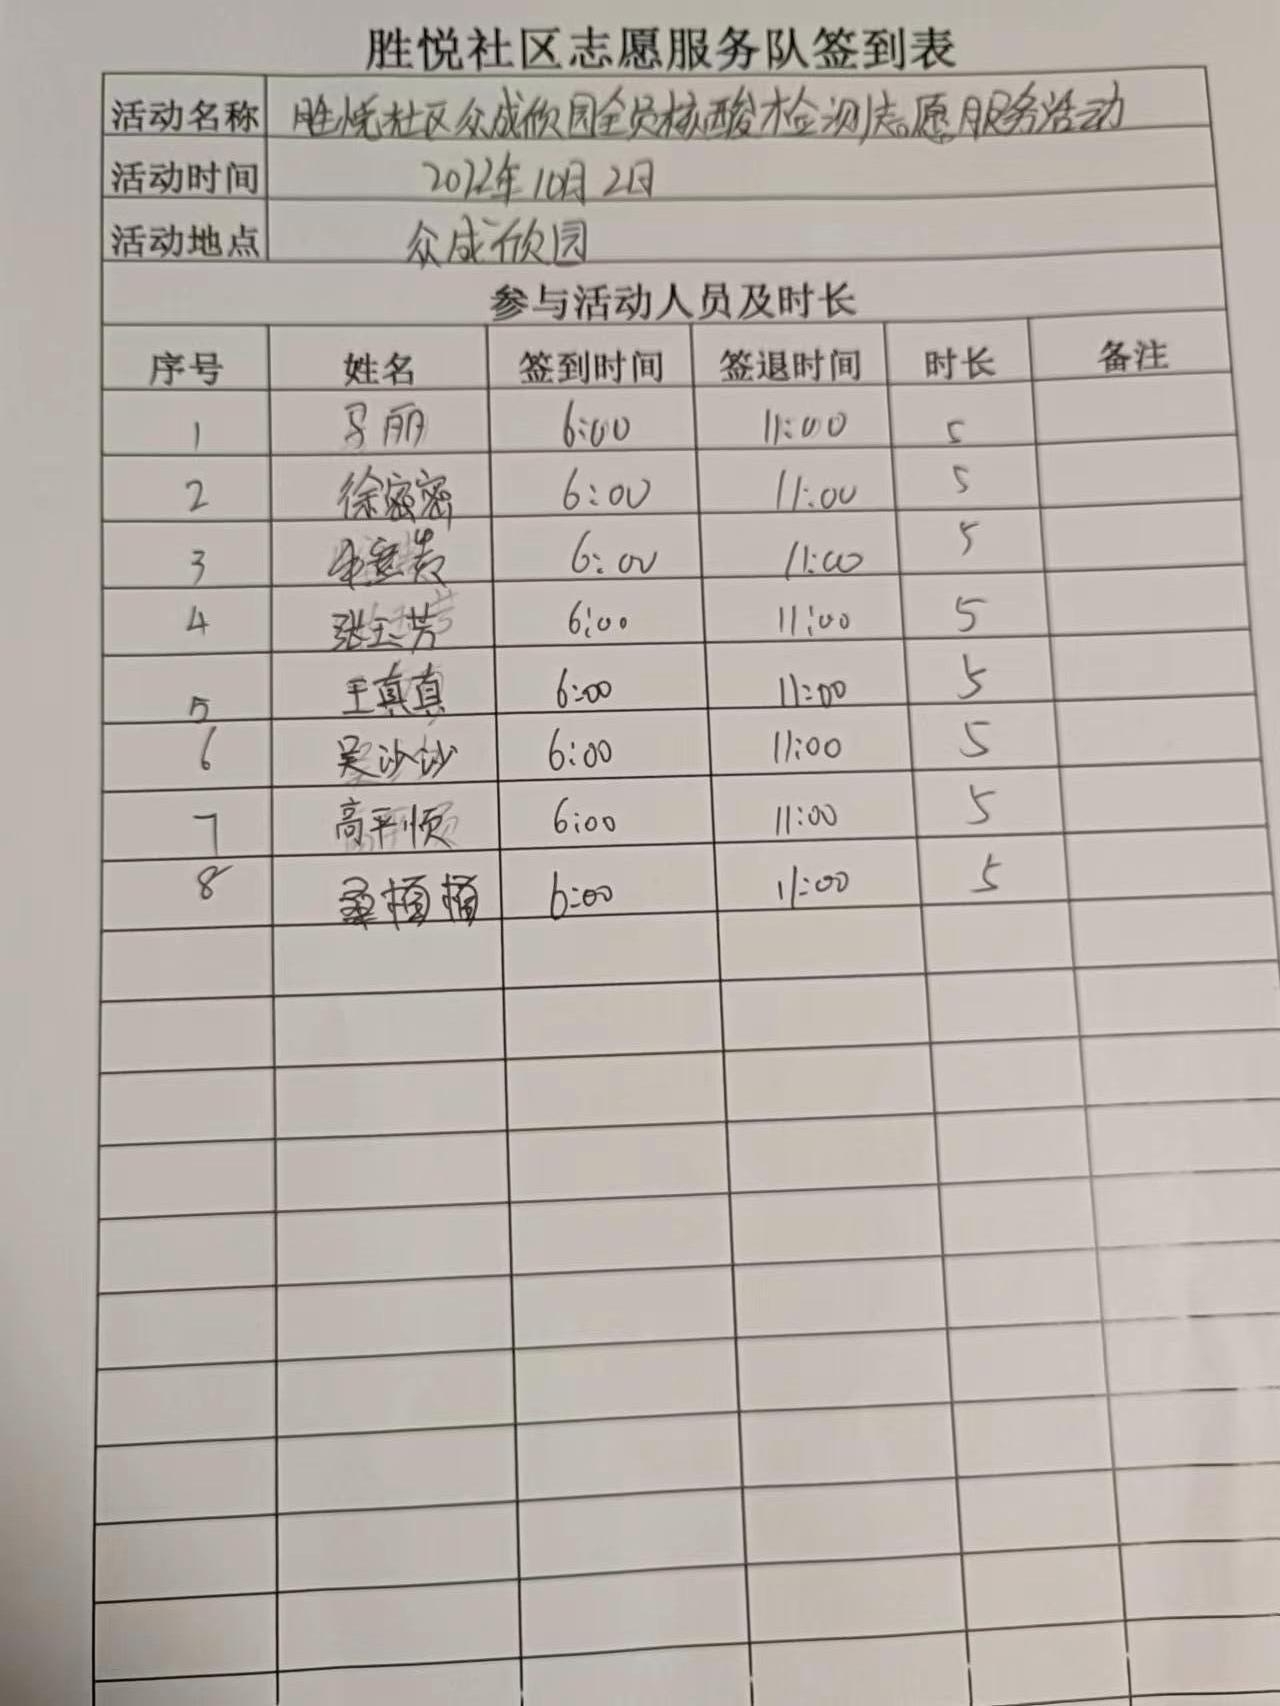 胜悦社区志愿服务队签到表
活动名称 胜悦社区众成欣园全员核酸检测志愿服务活动
活动时间 2022年10月2日
活动地点 众成欣园
参与活动人员及时长
序号 姓名 签到时间 签退时间 时长 备注
1 马丽 6:00 11:00 5
2 徐密密 6:00 11:00 5
3 6:00 11:00 5
4 张玉芳 6:00 11:00 5
5 王真真 6:00 11:00 5
6 吴沙沙 6:00 11:00 5
7 高平顺 6:00 11:00 5
8 桑 6:00 11:00 5